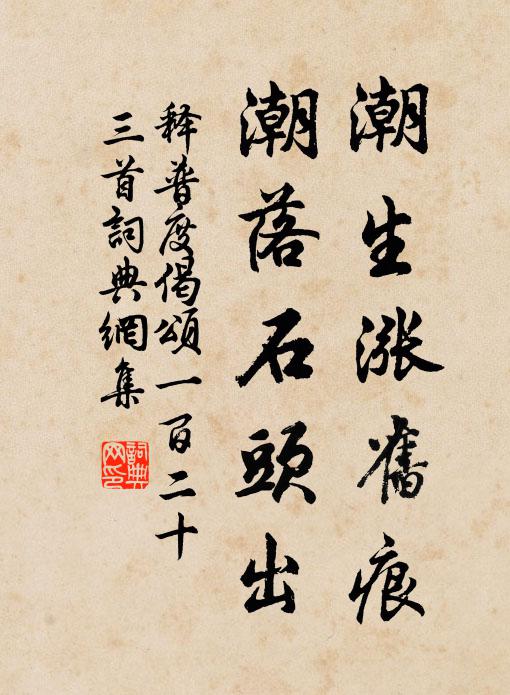 潮生漲舊痕
潮落石頭出
釋普度偈頌一百二十
三首詞典網集
詞典
网印